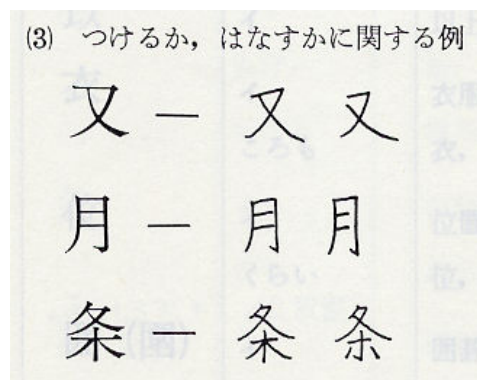 (3) つけるか，はなすかに関する例
又 ― 又 又
月 ― 月 月
条 ― 条 条